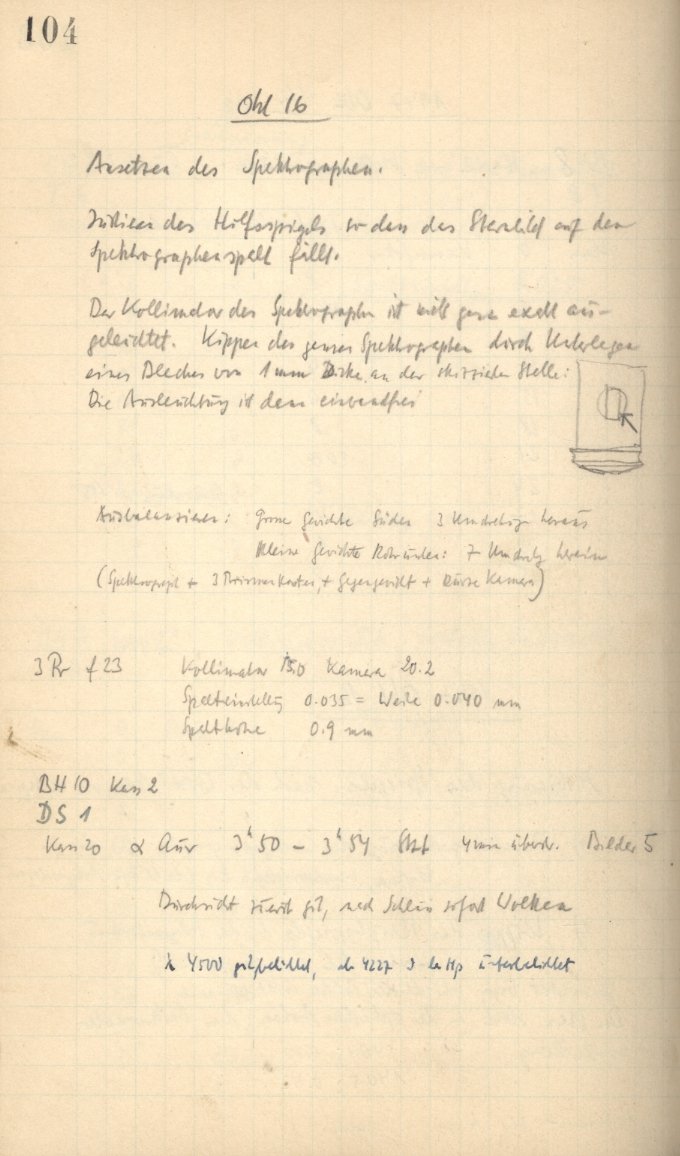 104
Okt 16
Ansetzen des Spektrographen.
Justieren des Hilfsspiegels so dass das Sternbild auf den
Spektrographenspalt fällt.
Der Kollimator des Spektrographen ist nicht ganz exakt aus-
geleuchtet. Kippen des ganzen Spektrographen durch Unterlegen
eines Bleches von 1 mm Dicke an der skizzierten Stelle:
Die Ausleuchtung ist dann einwandfrei
Ausbalanzieren: Grosse Gewichte Süden 3 Umdrehungen heraus
Kleine Gewichte Rohr unten: 7 Umdrehg herein
(Spektrograph + 3 Prismenkasten, + Gegengewicht + Kurze Kamera)
3 Pr f 23 Kollimator 15.0 Kamera 20.2
Spalteinstellung 0.035 = Weite 0.040 mm
Spalthöhe 0.9 mm
BH 10 Kass 2
DS 1
Kass 20 α Aur 3ʰ50 – 3ʰ54 4 min Bilder 5
Durchsicht zuerst gut, nach Schluss sofort Wolken
λ 4500 gut belichtet, 4227 überbelichtet